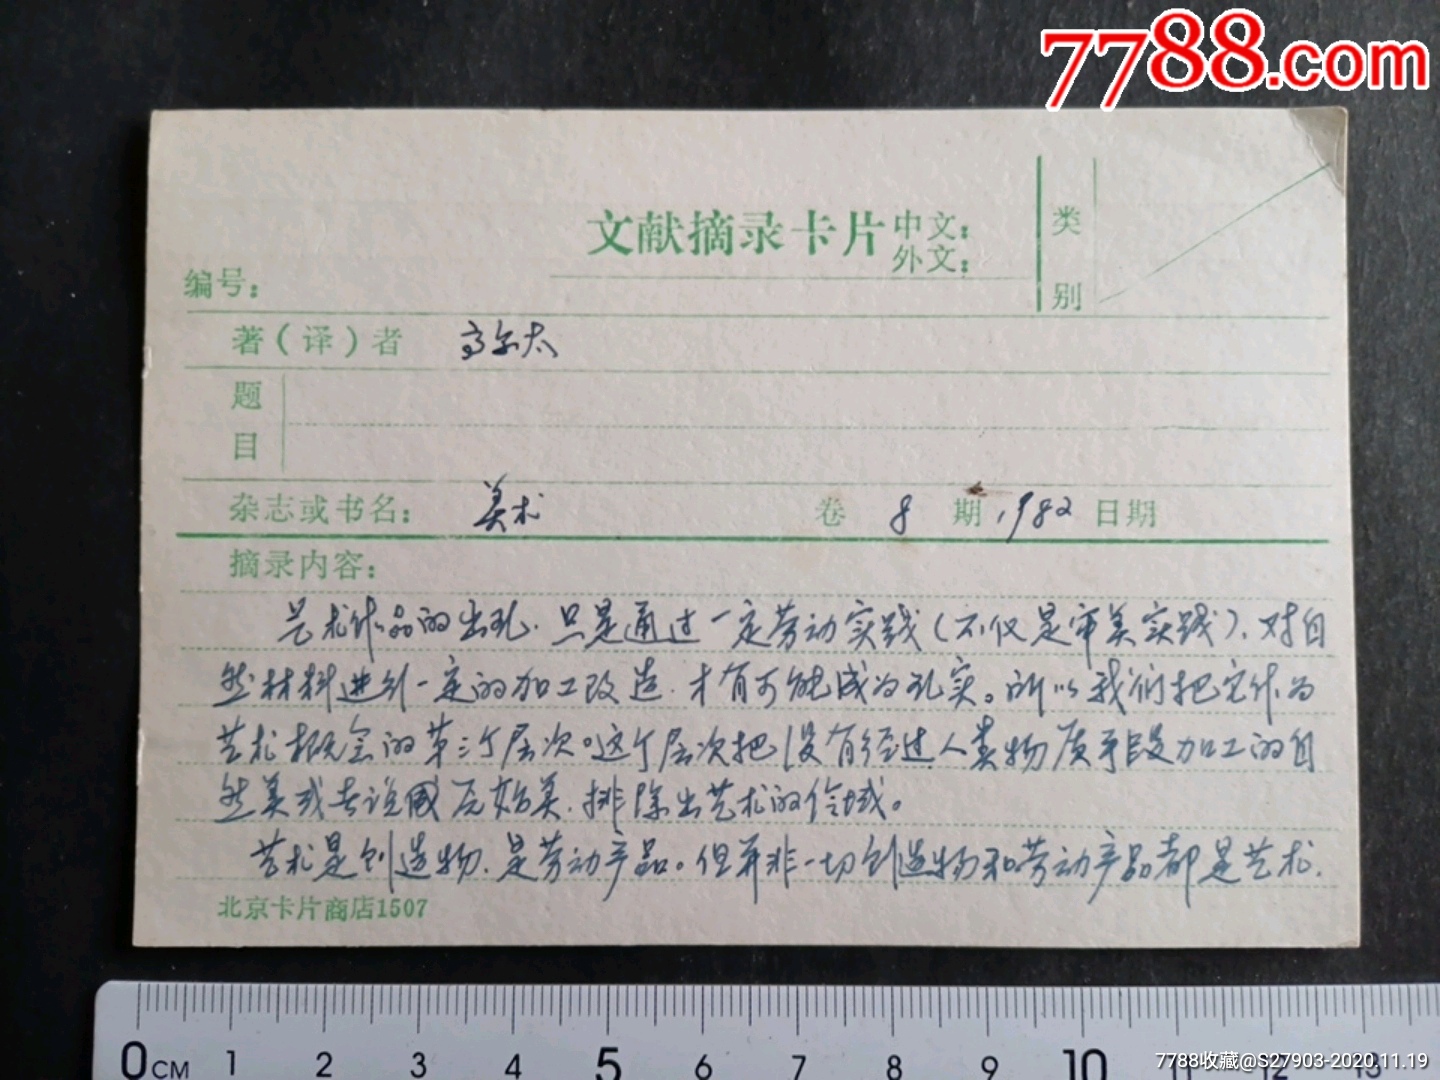 7788.com
文献摘录卡片 中文：
外文：
类别
编号：
著（译）者 高尔太
题目
杂志或书名： 美术 卷 8 期 1982 日期
摘录内容：
艺术作品的出现．只是通过一定劳动实践（不仅是审美实践）．对自
然材料进行一定的加工改造．才有可能成为现实。所以我们把它作为
艺术概念的第三个层次。这个层次把没有经过人类物质手段加工的自
然美或者说原始美．排除出艺术的领域。
艺术是创造物．是劳动产品。但并非一切创造物和劳动产品都是艺术．
北京卡片商店1507
0CM 1 2 3 4 5 6 7 8 9 10 11 12 13
7788收藏@S27903-2020.11.19